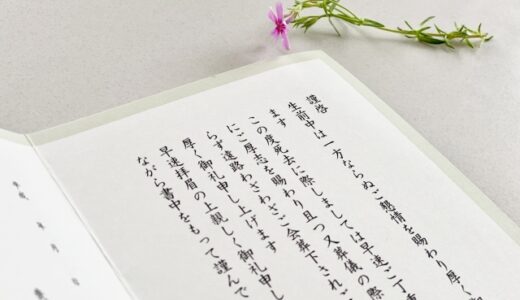 謹啓
生前中は一方ならぬご懇情を賜わり厚く
ます
この度死去に際しましては早速ご丁重
にご厚志を賜わり且つ又葬儀の際
らず遠路わざわざご会葬下されご
厚く御礼申し上げます
早速拝眉の上親しく御礼申し
ながら書中をもって謹んで